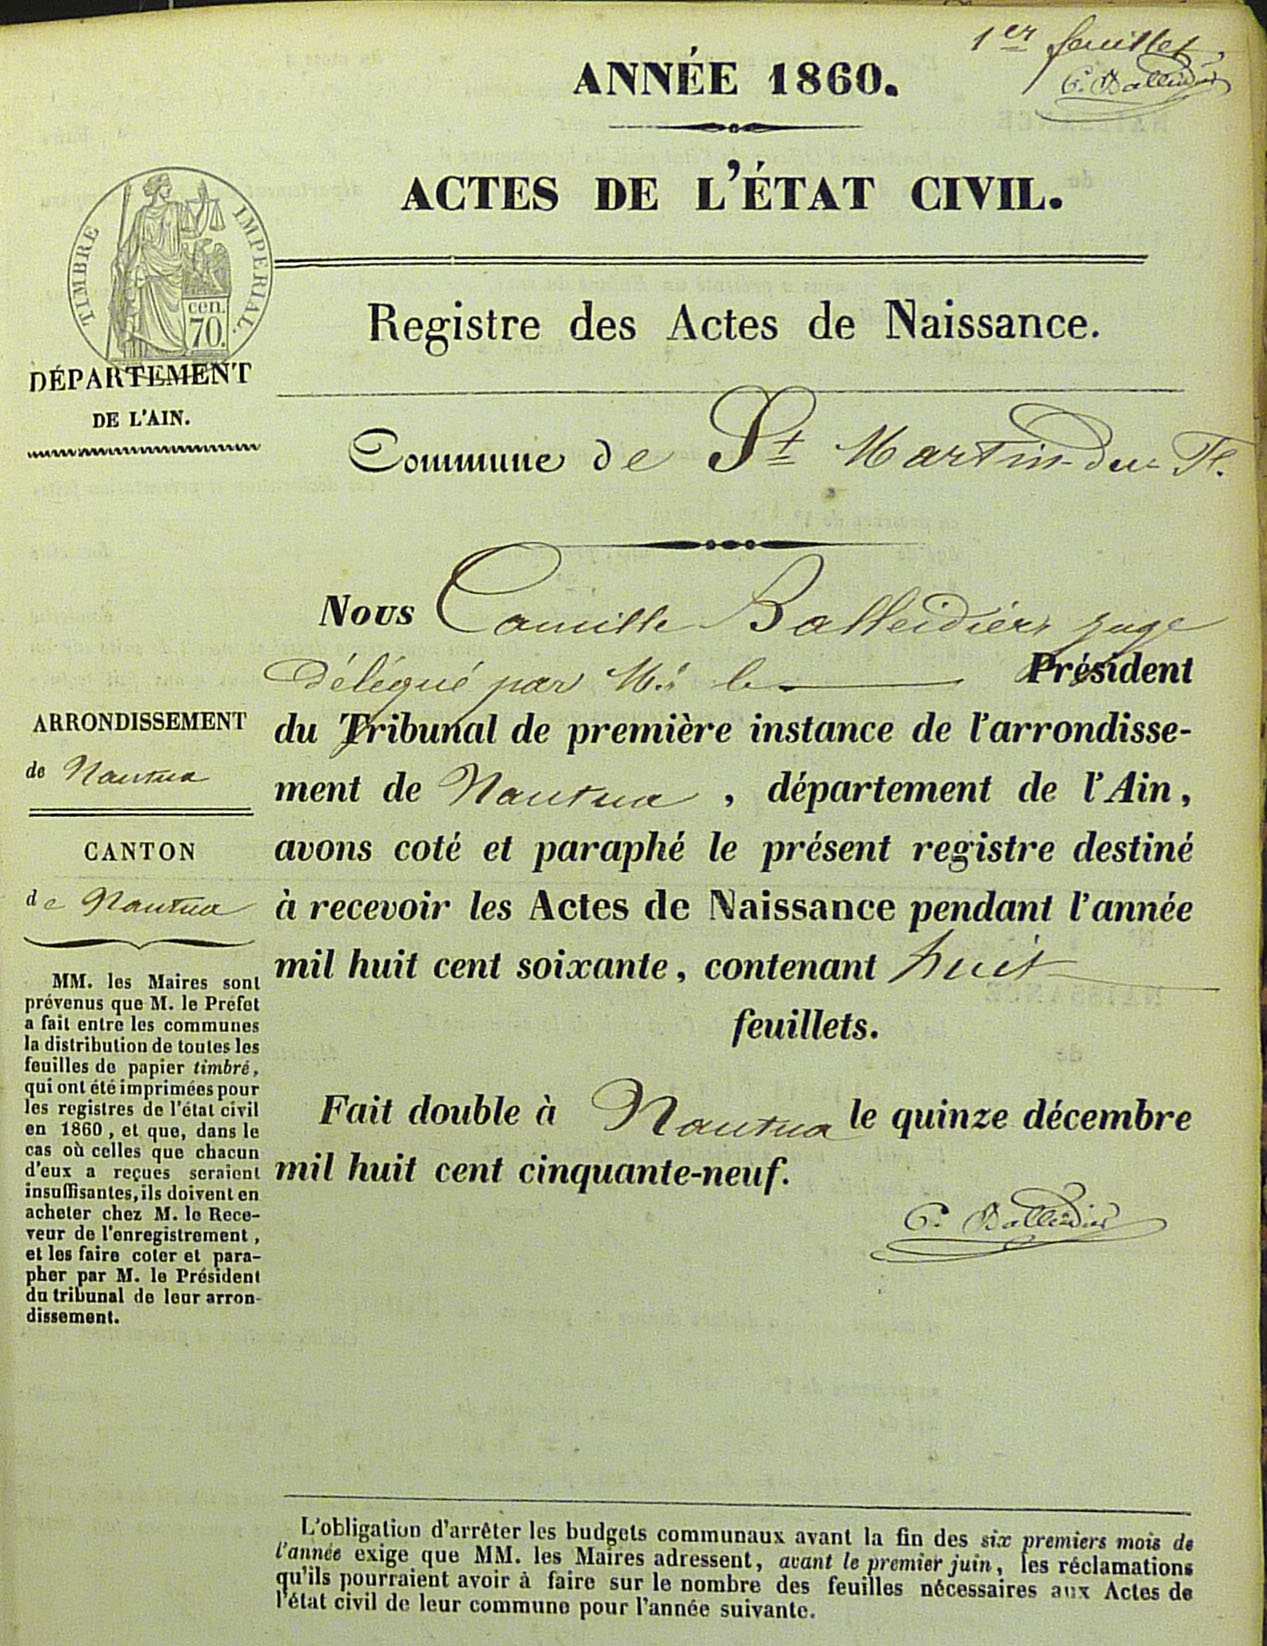 1er feuillet
C. Balleidier
ANNÉE 1860.
ACTES DE L'ÉTAT CIVIL.
TIMBRE IMPERIAL.
cen.
70.
Registre des Actes de Naissance.
DÉPARTEMENT
DE L'AIN.
Commune de St Martin-du-F.
Nous Camille Balleidier, juge
délégué par Mr. le Président
du Tribunal de première instance de l'arrondisse-
ment de Nantua, département de l'Ain,
avons coté et paraphé le présent registre destiné
à recevoir les Actes de Naissance pendant l'année
mil huit cent soixante, contenant huit
feuillets.
Fait double à Nantua le quinze décembre
mil huit cent cinquante-neuf.
C. Balleidier
ARRONDISSEMENT
de Nantua
CANTON
de Nantua
MM. les Maires sont
prévenus que M. le Préfet
a fait entre les communes
la distribution de toutes les
feuilles de papier timbré,
qui ont été imprimées pour
les registres de l'état civil
en 1860, et que, dans le
cas où celles que chacun
d'eux a reçues seraient
insuffisantes, ils doivent en
acheter chez M. le Rece-
veur de l'enregistrement,
et les faire coter et para-
pher par M. le Président
du tribunal de leur arron-
dissement.
L'obligation d'arrêter les budgets communaux avant la fin des six premiers mois de
l'année exige que MM. les Maires adressent, avant le premier juin, les réclamations
qu'ils pourraient avoir à faire sur le nombre des feuilles nécessaires aux Actes de
l'état civil de leur commune pour l'année suivante.